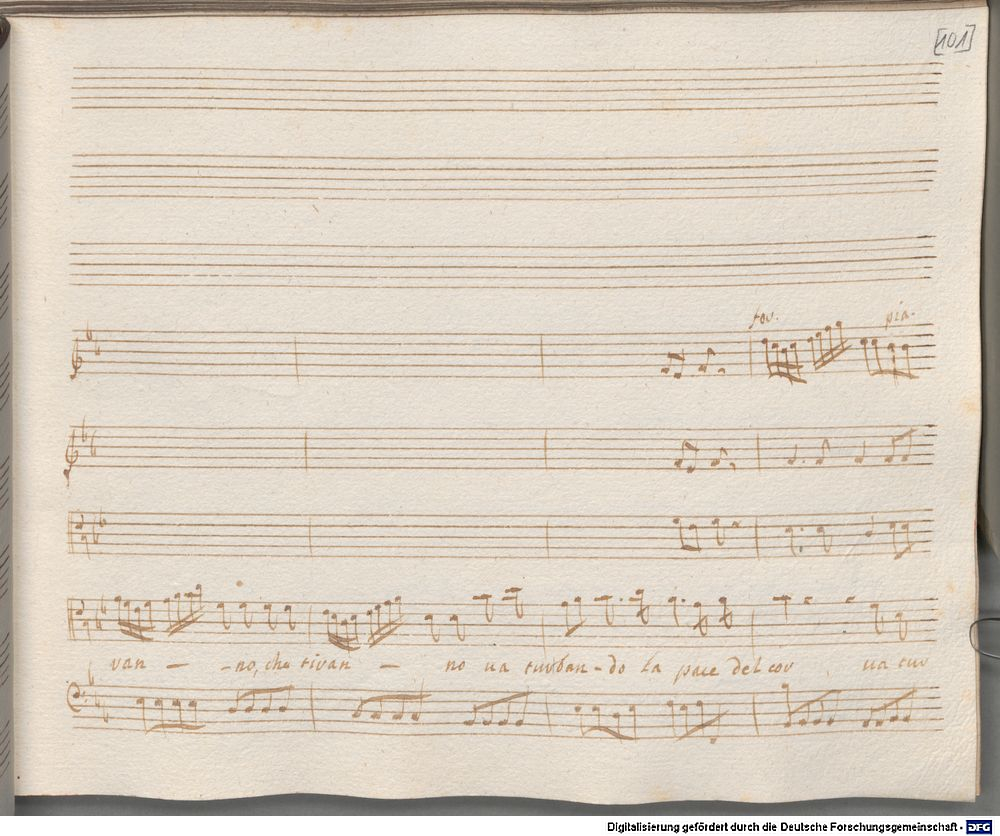 [101]
for. pia.
van - - no, che tiran - no va turban - do la pace del cor va tur
Digitalisierung gefördert durch die Deutsche Forschungsgemeinschaft - DFG